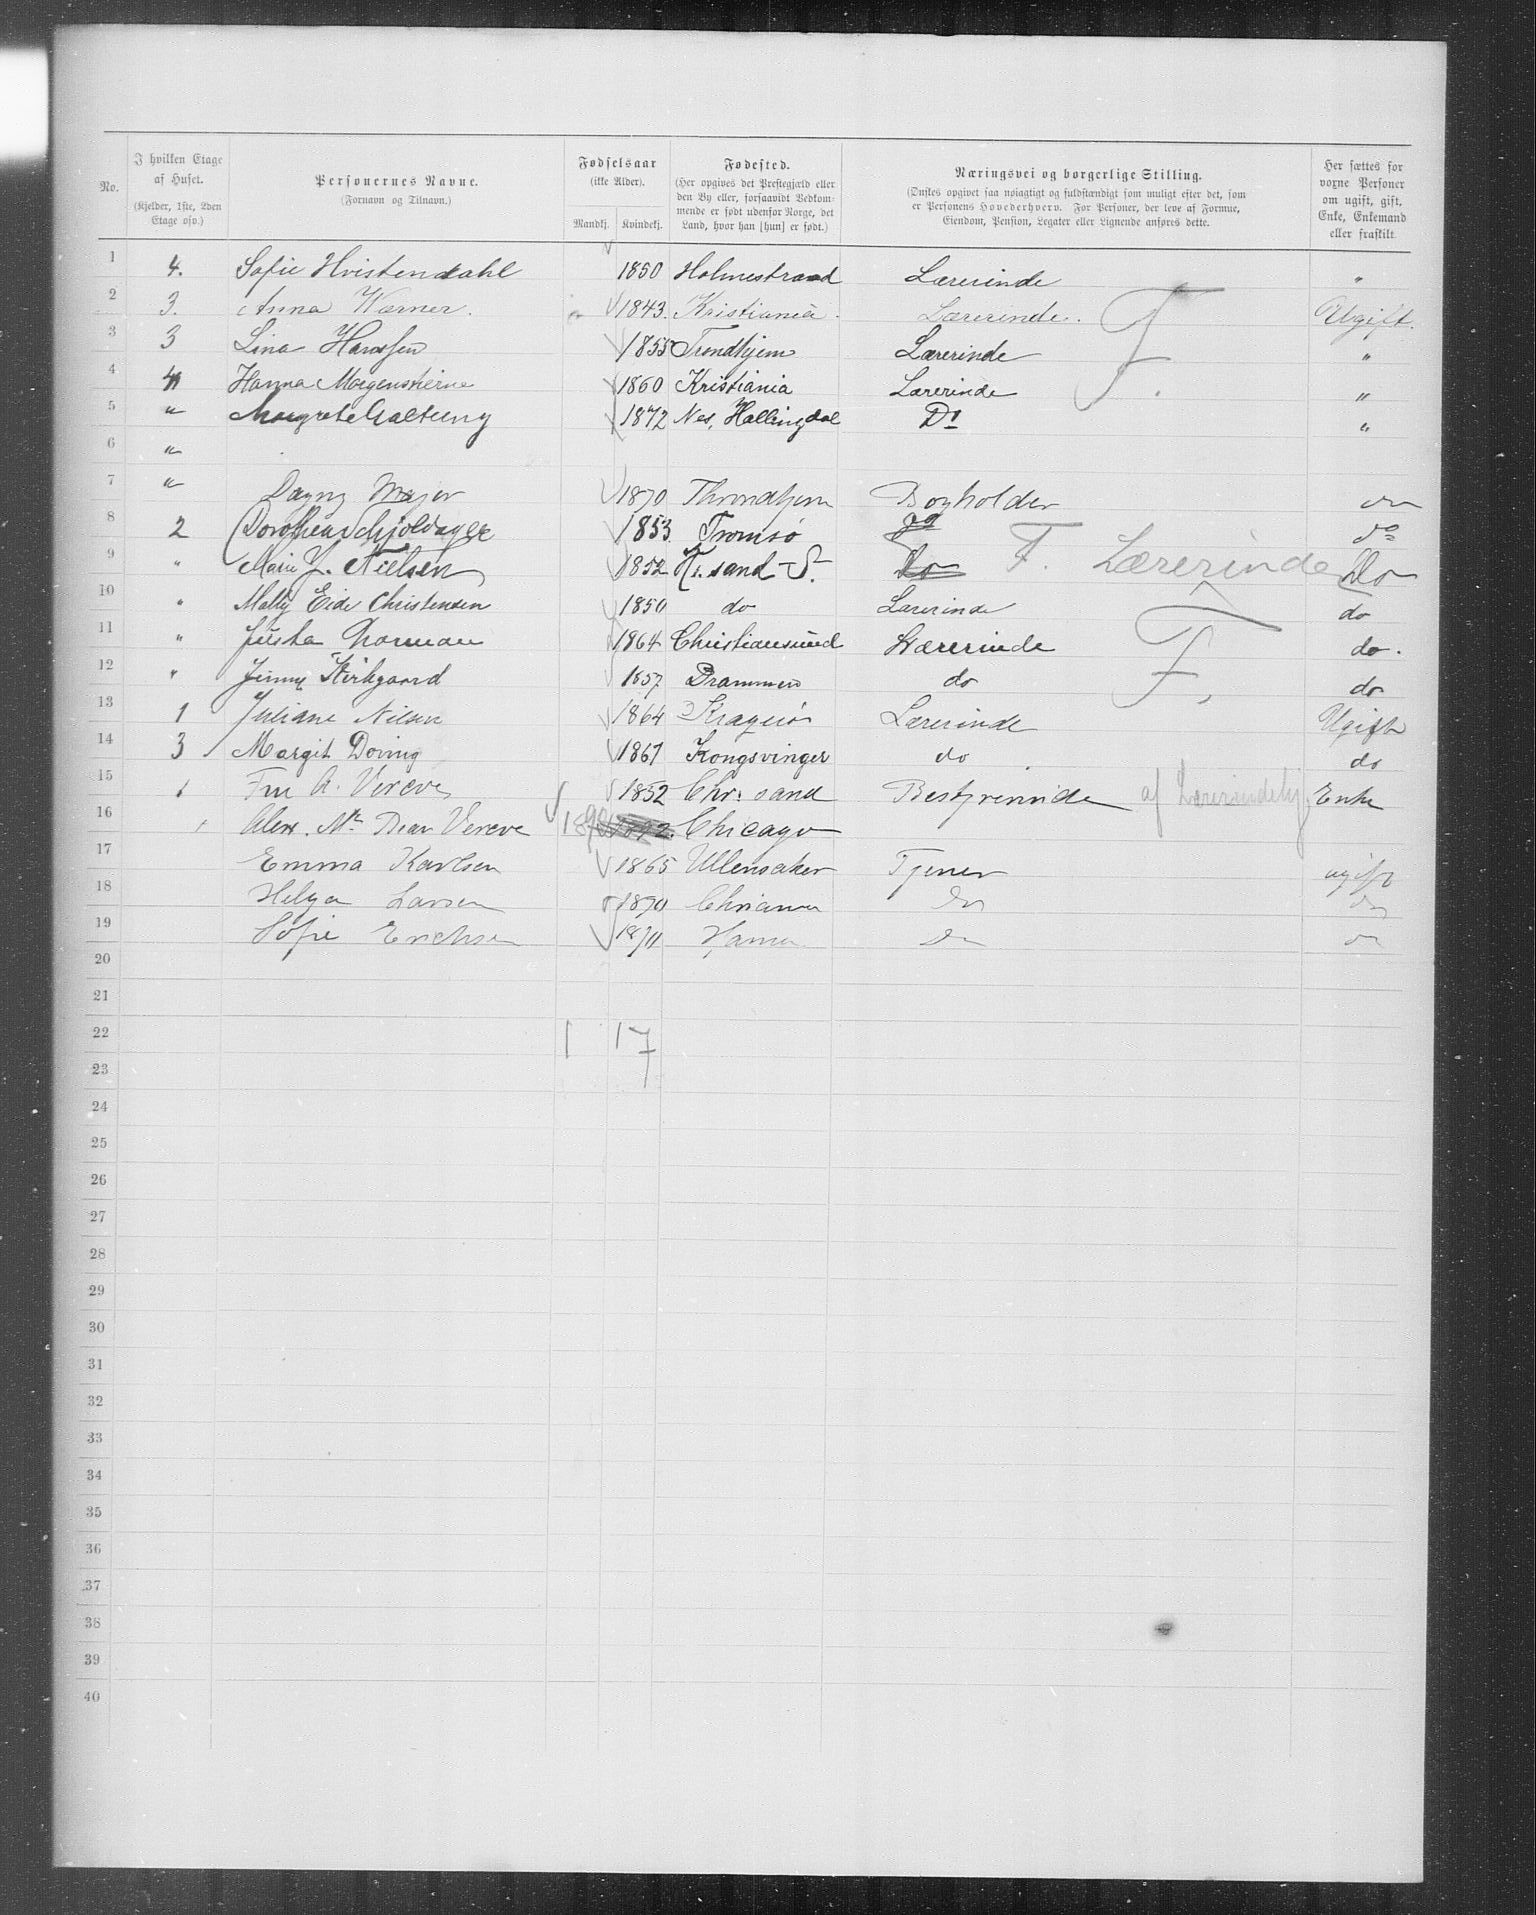 No. | I hvilken Etage af Huset. (Kjelder, 1ste, 2den Etage osv.) | Personernes Navne. (Fornavn og Tilnavn.) | Fødselsaar (ikke Alder). Mandkj. Kvindekj. | Fødested. (Her opgives det Prestegjæld eller den By eller, forsaavidt Vedkommende er født udenfor Norge, det Land, hvor han [hun] er født.) | Næringsvei og borgerlige Stilling. (Ønskes opgivet saa nøiagtigt og fuldstændigt som muligt efter det, som er Personens Hovederhverv. For Personer, der leve af Formue, Eiendom, Pension, Legater eller Lignende anføres dette.) | Her sættes for voxne Personer om ugift, gift, Enke, Enkemand eller fraskilt.
1 4. Sofie Hvistendahl 1850 Holmestrand Lærerinde "
2 3. Anna Warner. 1843. Kristiania. Lærerinde. Ugift.
3 3 Lina Hansen 1855 Trondhjem Lærerinde F. "
4 4 Hanna Morgenstierne 1860 Kristiania Lærerinde "
5 " Margrete Galtung 1872 Nes, Hallingdal Do "
6 "
7 " Dagny Majer 1870 Throndhjem Bogholder do
8 2 Dorothea Schjoldager 1853. Tromsø do do
9 " Marie J. Nielsen 1852 Kr.sand S. Do F. Lærerinde Do
10 " Mally Eide Christensen 1850 do Lærerinde do
11 " Justa Thorman 1864 Christiansund Lærerinde F. do.
12 " Jenny Kirkgaard 1857 Drammen do do
13 1 Juliane Nilsen 1864 Kragerø Lærerinde Ugift
14 3 Margit Döving 1867 Kongsvinger do do
15 1 Fru A. Vereve 1852 Chr.sand Bestyrerinde af Enke
16 Alex. Mc Dear Vereve Chicago
17 Emma Karlsen 1865 Ullensaker Tjener ugift
18 Helga Larsen 1870 Chriania do do
19 Sofie Erichsen 1871 Hamar do do
20
21
22 1 17
23
24
25
26
27
28
29
30
31
32
33
34
35
36
37
38
39
40